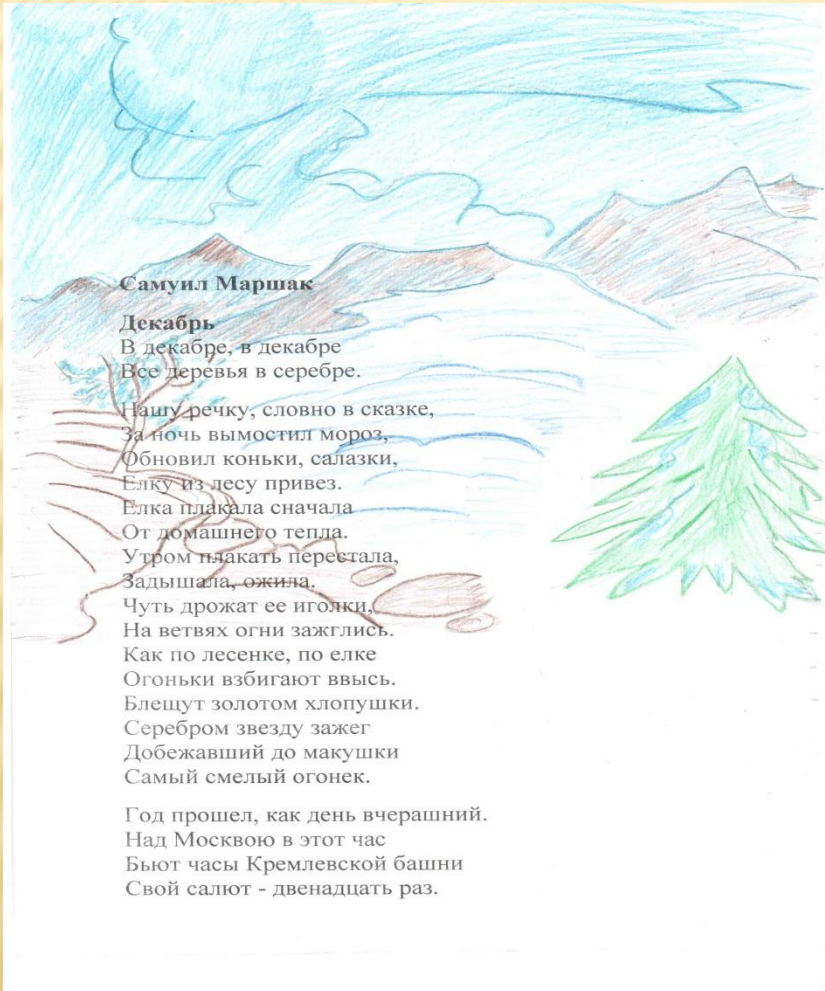 Самуил Маршак
Декабрь
В декабре, в декабре
Все деревья в серебре.
Нашу речку, словно в сказке,
За ночь вымостил мороз,
Обновил коньки, салазки,
Елку из лесу привез.
Елка плакала сначала
От домашнего тепла.
Утром плакать перестала,
Задышала, ожила.
Чуть дрожат ее иголки,
На ветвях огни зажглись.
Как по лесенке, по елке
Огоньки взбигают ввысь.
Блещут золотом хлопушки.
Серебром звезду зажег
Добежавший до макушки
Самый смелый огонек.
Год прошел, как день вчерашний.
Над Москвою в этот час
Бьют часы Кремлевской башни
Свой салют - двенадцать раз.